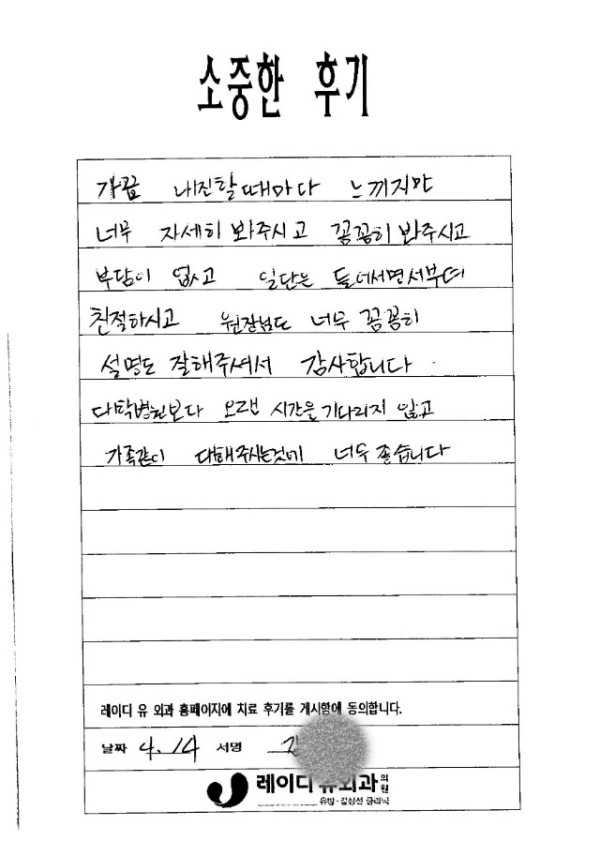 소중한 후기
가끔 내진할때마다 느끼지만
너무 자세히 봐주시고 꼼꼼히 봐주시고
부담이 없고 일단은 들어서면서부터
친절하시고 원장님도 너무 꼼꼼히
설명도 잘해주셔서 감사합니다.
대학병원보다 오랜 시간을 기다리지 않고
가족같이 대해주시는것에 너무 좋습니다
레이디 유 외과 홈페이지에 치료 후기를 게시함에 동의합니다.
날짜 4.14 서명
레이디 유외과의원
유방·갑상선 클리닉